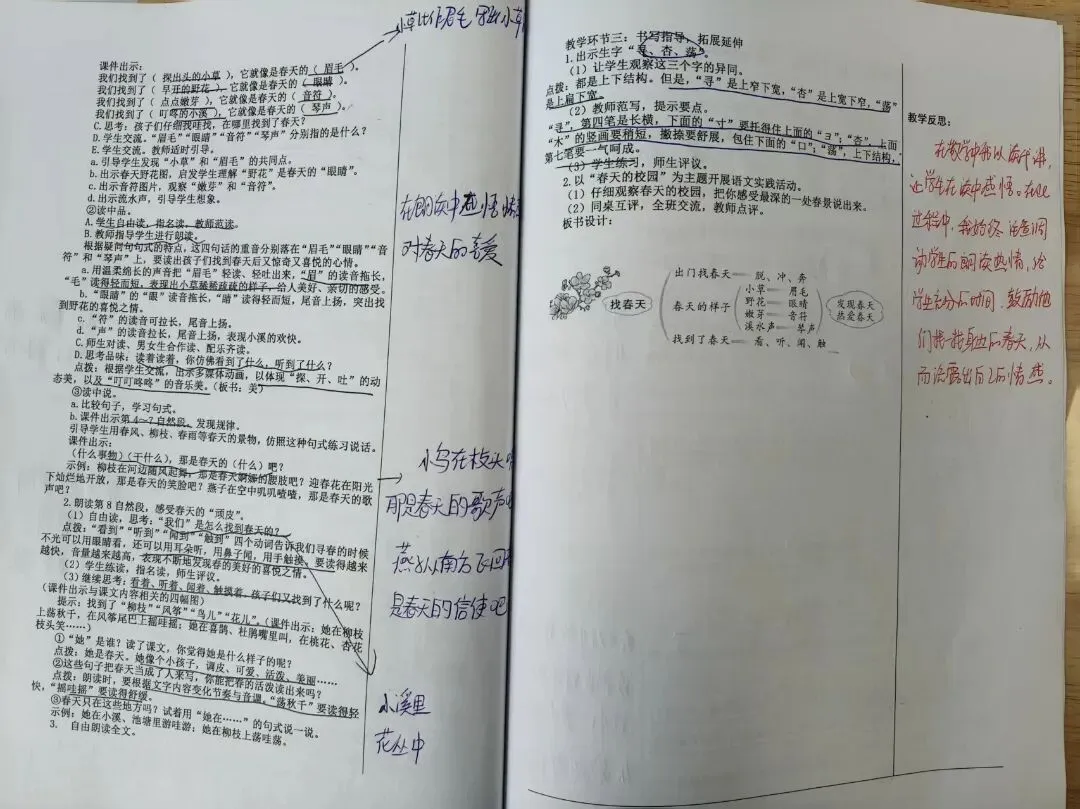 小草比作眉毛
课件出示：
我们找到了（ 探出头的小草 ），它就像是春天的（ 眉毛 ）。
我们找到了（ 早开的野花 ），它就像是春天的（ 眼睛 ）。
我们找到了（ 点点嫩芽 ），它就像是春天的（ 音符 ）。
我们找到了（ 叮咚的小溪 ），它就像是春天的（ 琴声 ）。
C.思考：孩子们仔细找哇找，在哪里找到了春天？
D.学生交流。“眉毛”“眼睛”“音符”“琴声”分别指的是什么？
E.学生交流。教师适时引导。
a.引导学生发现“小草”和“眉毛”的共同点。
b.出示春天野花图，启发学生理解“野花”是春天的“眼睛”。
c.出示音符图片，观察“嫩芽”和“音符”。
d.出示流水声，引导学生想象。
②读中品。
A.学生自由读，指名读，教师范读。
B.教师指导学生进行朗读。
根据疑问句句式的特点，这四句话的重音分别落在“眉毛”“眼睛”“音
符”和“琴声”上，要读出孩子们找到春天后又惊奇又喜悦的心情。
a.用温柔绵长的声音把“眉毛”轻读、轻吐出来，“眉”的读音拖长，
“毛”读得轻而短，表现出小草稀稀疏疏的样子，给人美好、亲切的感受。
b.“眼睛”的“眼”读音拖长，“睛”读得轻而短，尾音上扬，突出找
到野花的喜悦之情。
c.“符”的读音可拉长，尾音上扬。
d.“声”的读音拉长，尾音上扬，表现小溪的欢快。
C.师生对读、男女生合作读、配乐齐读。
D.思考品味：读着读着，你仿佛看到了什么，听到了什么？
点拨：根据学生交流，出示多媒体动画，以体现“探、开、吐”的动
态美，以及“叮叮咚咚”的音乐美。（板书：美）
③读中说。
a.比较句子，学习句式。
b.课件出示第4～7自然段，发现规律。
引导学生用春风、柳枝、春雨等春天的景物，仿照这种句式练习说话。
课件出示：
（什么事物）（干什么），那是春天的（什么）吧？
示例：柳枝在河边随风起舞，那是春天婀娜的腰肢吧？迎春花在阳光
下灿烂地开放，那是春天的笑脸吧？燕子在空中叽叽喳喳，那是春天的歌
声吧？
2.朗读第8自然段，感受春天的“顽皮”。
（1）自由读，思考：“我们”是怎么找到春天的？
点拨：“看到”“听到”“闻到”“触到”四个动词告诉我们寻春的时候
不光可以用眼睛看，还可以用耳朵听，用鼻子闻，用手触摸，要读得越来
越快，音量越来越高，表现不断地发现春的美好的喜悦之情。
（2）学生练读，指名读，师生评议。
（3）继续思考：看着、听着、闻着、触摸着，孩子们又找到了什么呢？
（课件出示与课文内容相关的四幅图）
提示：找到了“柳枝”“风筝”“鸟儿”“花儿”。（课件出示：她在柳枝
上荡秋千，在风筝尾巴上摇哇摇；她在喜鹊、杜鹃嘴里叫，在桃花、杏花
枝头笑……）
①“她”是谁？读了课文，你觉得她是什么样子的呢？
点拨：她是春天。她像个小孩子，调皮、可爱、活泼、美丽……
②这些句子把春天当成了人来写，你能把春的活泼读出来吗？
点拨：朗读时，要根据文字内容变化节奏与音调。“荡秋千”要读得轻
快，“摇哇摇”要读得舒缓。
③春天只在这些地方吗？试着用“她在……”的句式说一说。
示例：她在小溪、池塘里游哇游；她在柳枝上荡哇荡。
3. 自由朗读全文。
在朗读中感悟
对春天的喜爱
小鸟在枝头
那是春天的歌声
燕子从南方飞回
是春天的信使吧
小溪里
花丛中
教学环节三：书写指导，拓展延伸
1.出示生字“寻、杏、荡”。
（1）让学生观察这三个字的异同。
点拨：都是上下结构。但是，“寻”是上窄下宽，“杏”是上宽下窄，“荡”
是上扁下宽。
（2）教师范写，提示要点。
“寻”，第四笔是长横，下面的“寸”要托得住上面的“彐”；“杏”，上面
“木”的竖画要稍短，撇捺要舒展，包住下面的“口”；“荡”，上下结构，
第七笔要一气呵成。
（3）学生练习，师生评议。
2.以“春天的校园”为主题开展语文实践活动。
（1）仔细观察春天的校园，把你感受最深的一处春景说出来。
（2）同桌互评，全班交流，教师点评。
板书设计：
找春天
出门找春天 脱、冲、奔
春天的样子
小草 眉毛
野花 眼睛
嫩芽 音符
溪水声 琴声
找到了春天 看、听、闻、触
发现春天
热爱春天
教学反思：
在教学中我以读代讲，
让学生在读中感悟。在此
过程中，我始终注意调
动学生的朗读热情，给
学生充分的时间、鼓励他
们找一找身边的春天，从
而流露出自己的情感。